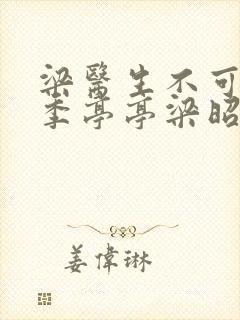 梁醫生不可
季亭亭梁昭
姜偉琳